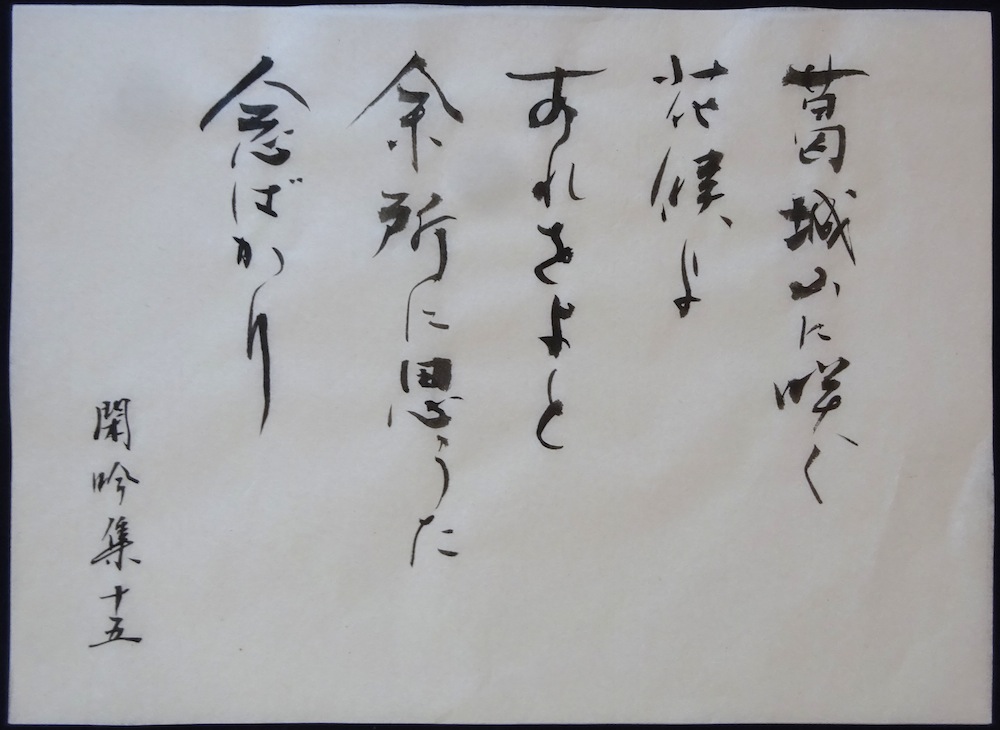 葛城山に咲く
花候よ
あれをよと
余所に思うた
念ばかり
閑吟集十五